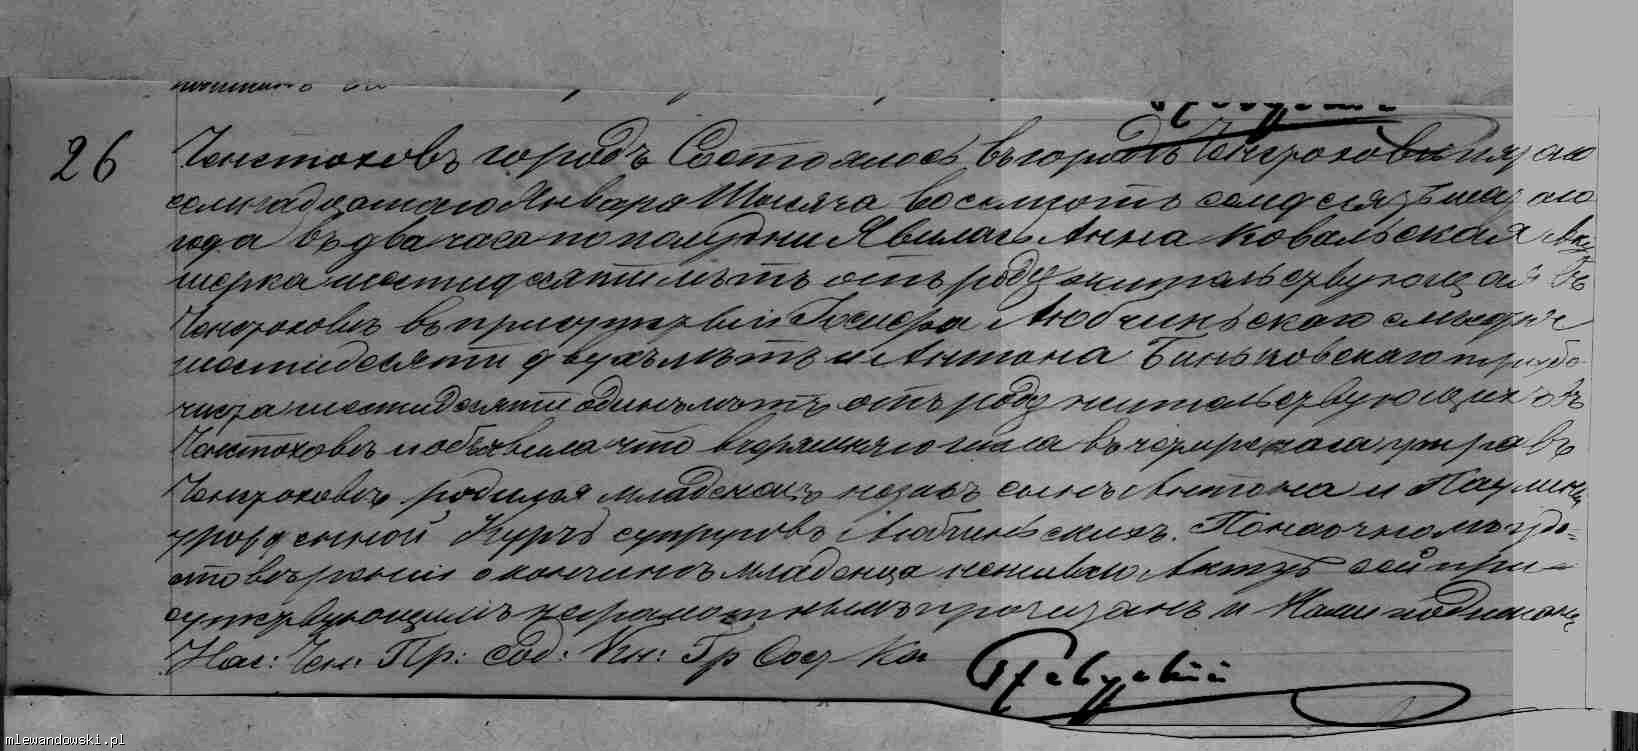 26
Ченстоховъ городъ Состоялось въ городѣ Ченстоховѣ пятаго
семнадцатаго Января Тысяча восемьсотъ семдесятъ шестаго
года въ два часа по полудни Явилась Анна Ковальская Аку
шерка шестидесяти лѣтъ отъ роду жительствующая въ
Ченстоховѣ въ присутствіи Іосифа Любчиньскаго
шестидесяти двухъ лѣтъ и Антона Биньковскаго
шестидесяти одинъ лѣтъ отъ роду жительствующихъ въ
Ченстоховѣ и объявила что вчерашняго числа въ четыре часа утра въ
Ченстоховѣ родился младенецъ незывъ сынъ Антона и Паулины
урожденной Курчъ супруговъ Любчиньскихъ. По наочномъ удо-
стовѣреніи о кончинѣ младенца неживаго Актъ сей при-
сутствующимъ неграмотнымъ прочитанъ и Нами подписанъ
Нас: Чен: Пр: Сод: Кн: Гр Сос
mlewandowski.pl